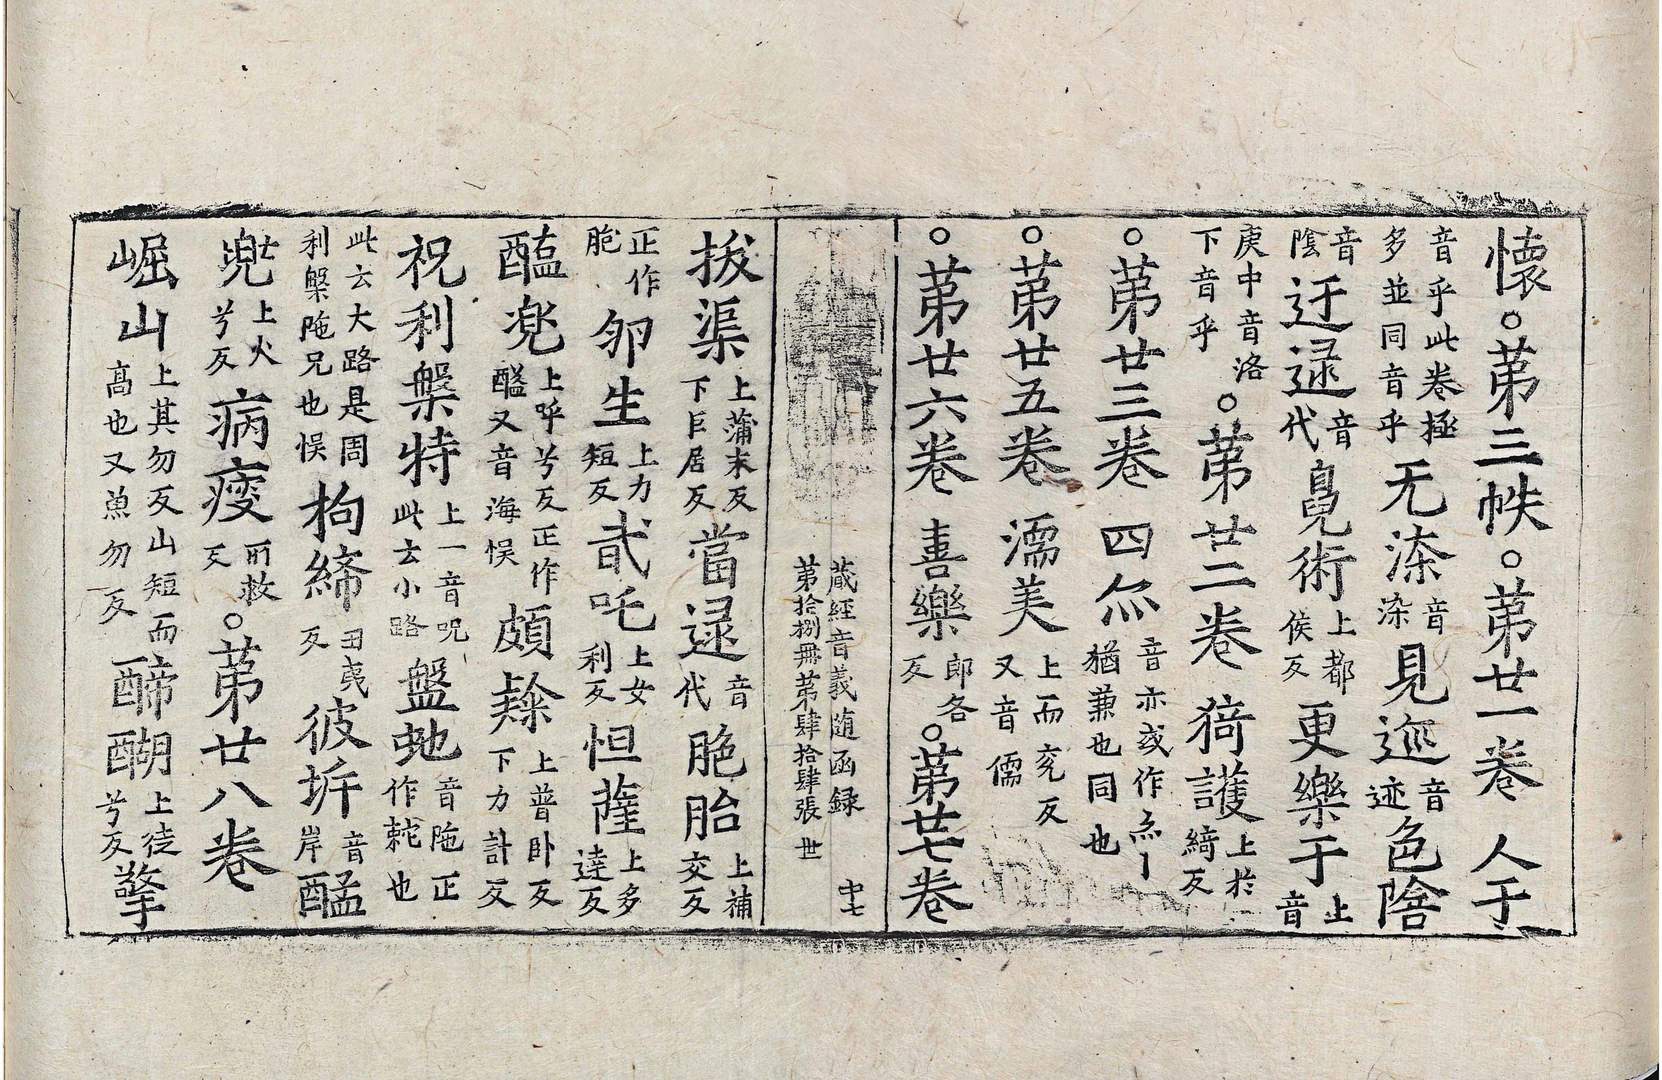 懷○苐三帙○苐廿一卷 人于
音乎此卷極多並同音乎 无渿 音染 見迹 音迹 色陰
音陰 迂逯 音代 㒵術 上都侯反 更樂于 上音
庚中音洛下音乎 ○苐廿二卷 猗護 上於綺反
○苐廿三卷 四尒 音亦或作尒丨猶兼也同也
○苐廿五卷 濡美 上而兖反又音儒
○苐廿六卷 喜樂 郎各反 ○苐廿七卷
蔵經音義随函録 中七
第拾捌冊第肆拾肆張 世
拔渠 上蒲末反下巨居反 當逯 音代 胞胎 上補交反
正作胞 夘生 上力短反 貮吒 上女利反 怛薩 上多達反
醘兠 上呼兮反正作醯又音海悞 頗隸 上普卧反下力計反
祝利槃特 上一音呪此云小路 盤虵 音陁正作䭾也
此云大路是周利槃陁兄也悞 拘締 田夷反 彼坼 音岸 醘
兠 上火兮反 病瘦 所救反 ○苐廿八卷
崛山 上其勿反山短而高也又魚勿反 醍醐 上徒兮反 擎